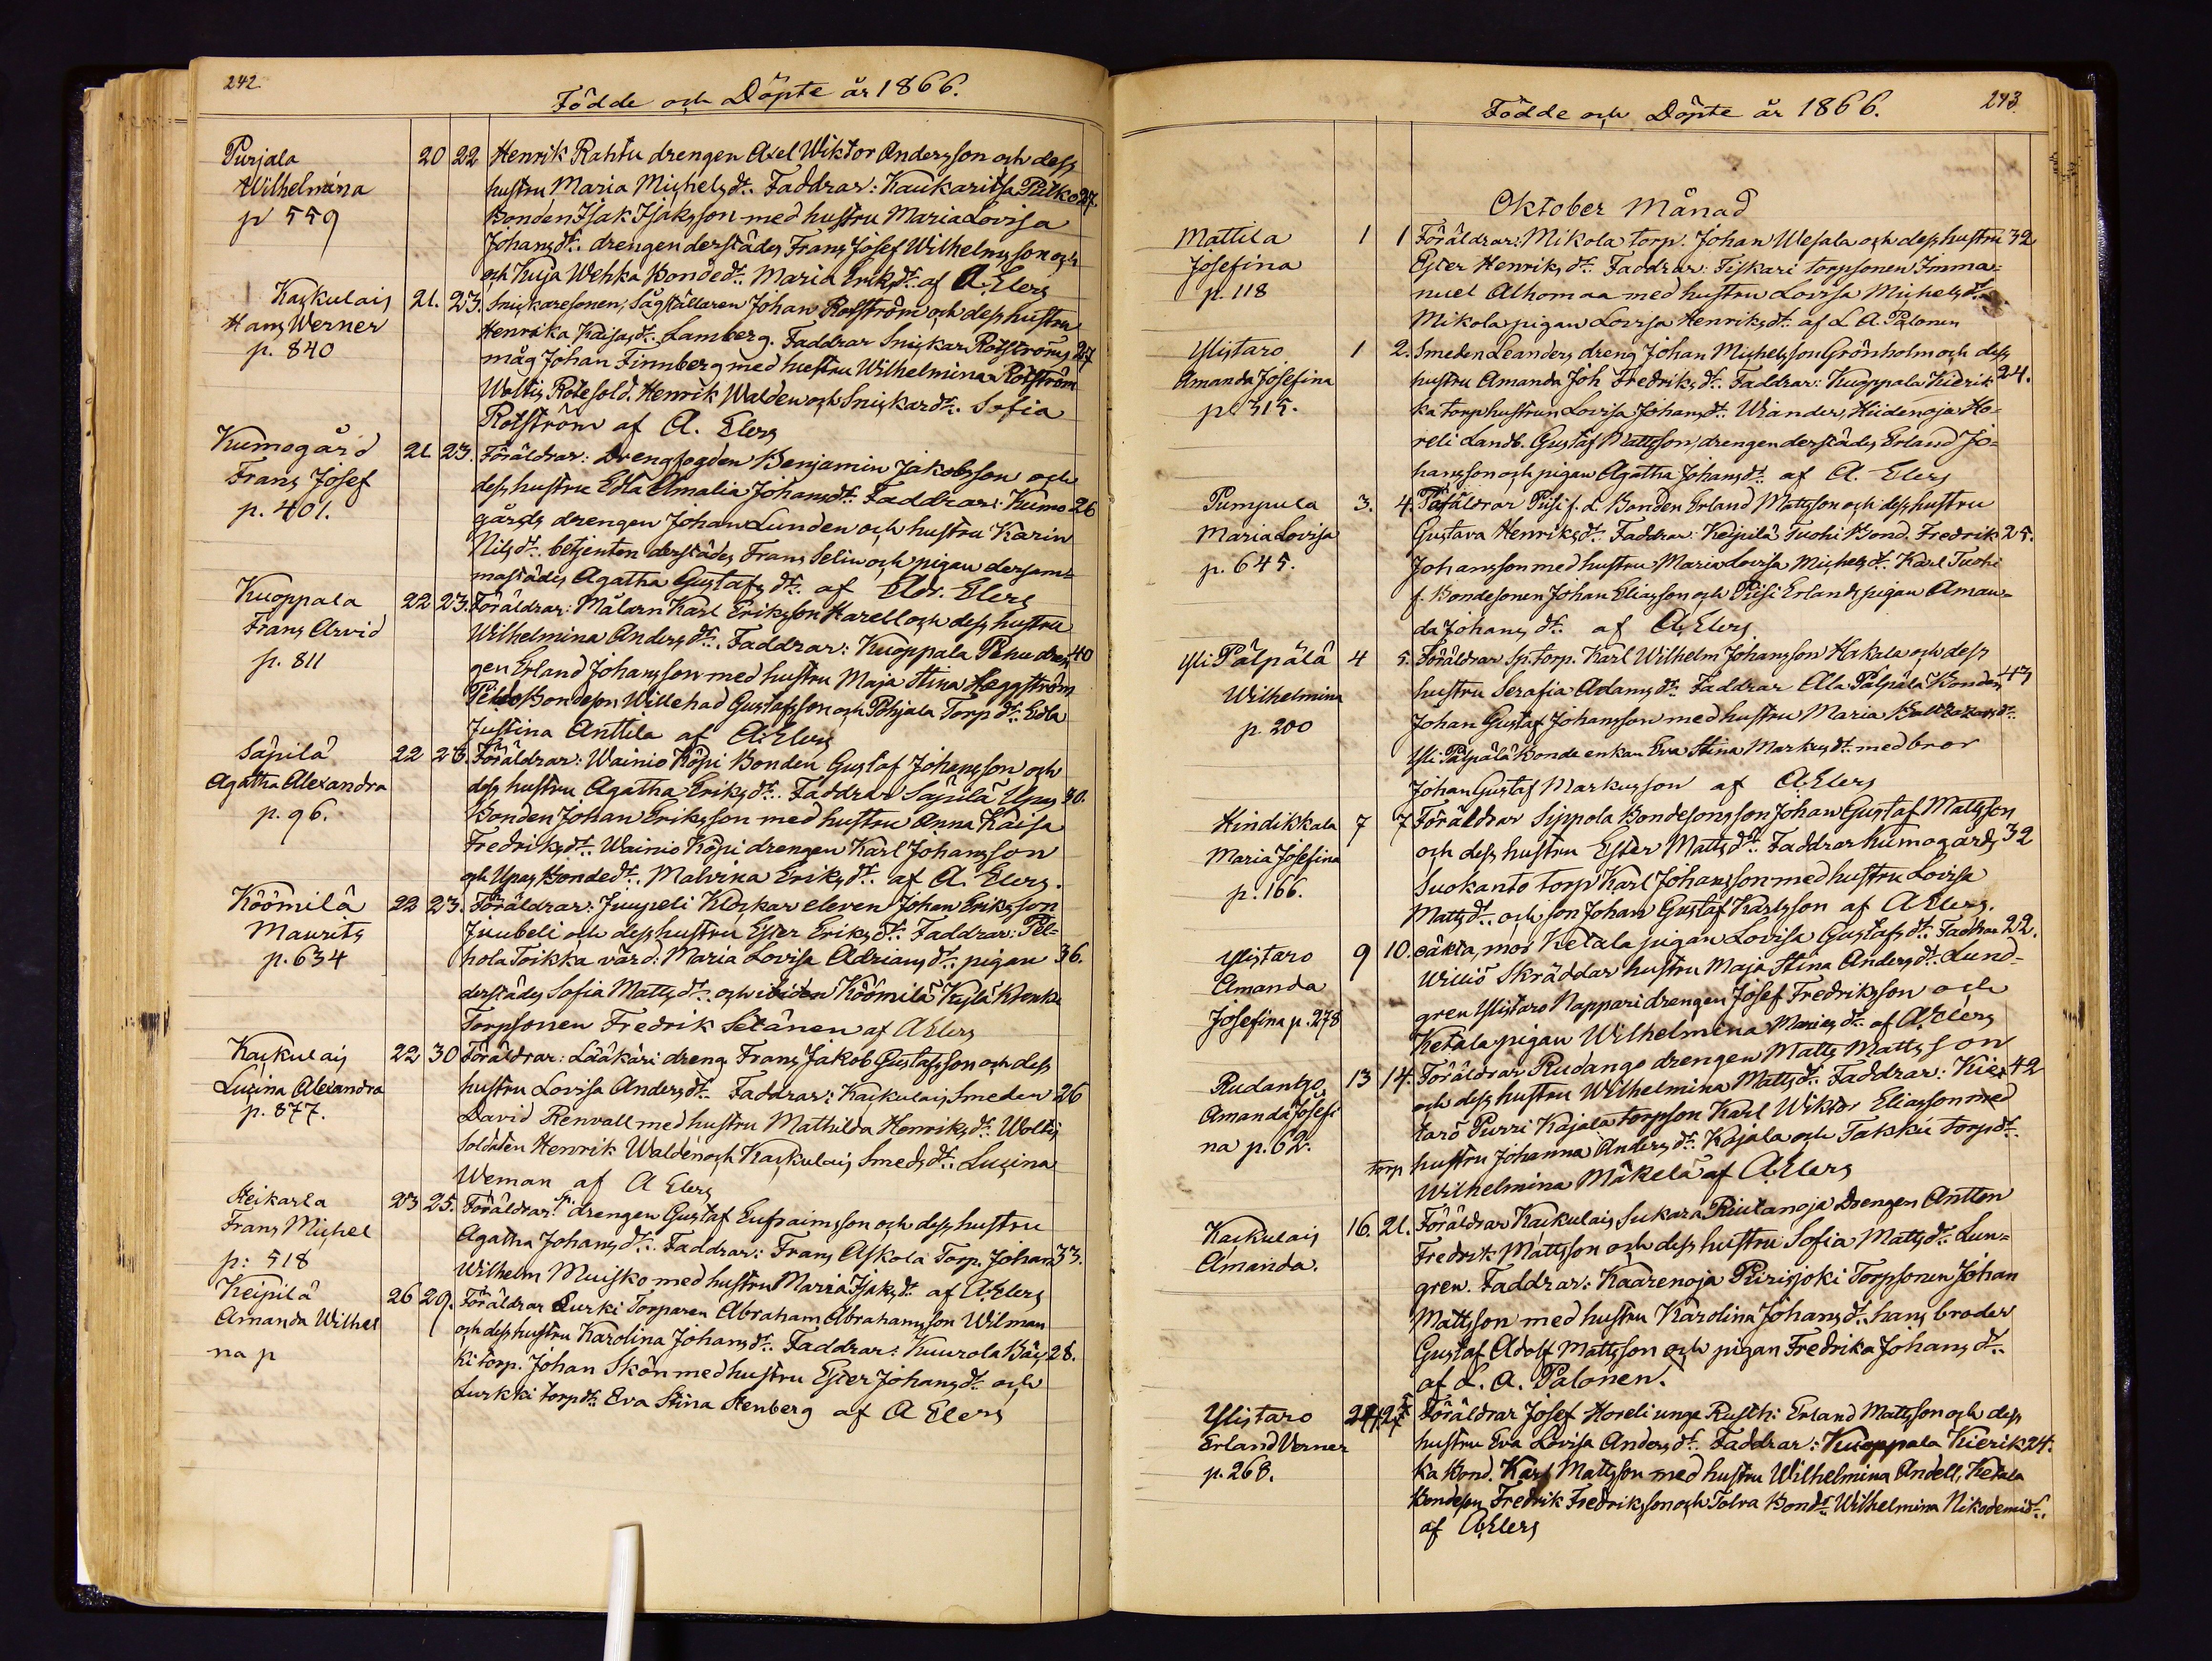 242
Födde och Döpte år 1866.
Purjala 20 22 Henrik Rahtu drengen Axel Wiktor Andersson och dess
Wilhelmina hustru Maria Michelsdr. Faddrar: Kaukaritsa Pilko 27.
p 559 Bonden Isak Isaksson med hustru Maria Lovisa
Johansdr. drengen derstädes Frans Josef Wilhelmsson och
och Kuja Wehka Bondedr. Maria Eriksdr. af A. Elers
Kaskulais 21. 23. Snickaresonen, Sågställaren Johan Rotström och dess hustru
Hans Werner Henrika Kaisasdr. Lamberg. Faddrar Snickar Rotströms 27
p. 840 måg Johan Finnberg med hustru Wilhelmina Rotström
Woltis Rotesold. Henrik Walden och Snickardr. Sofia
Rotström af A. Elers
Kumogård 21. 23. Föräldrar: Drengfogden Benjamin Jakobsson och
Frans Josef dess hustru Edla Amalia Johansdr. Faddrar: Kumo 26
p. 401. gårds drengen Johan Lunden och hustru Karin
Nilsdr. betjenten derstädes Frans Selin och pigan dersam-
mastädes Agatha Gustafsdr. af Adr. Elers
Kuoppala 22 23. Föräldrar: Målarn Karl Eriksson Harell och dess hustru
Frans Arvid Wilhelmina Andersdr. Faddrar: Kuoppala Pehu dren 40
p. 811 gen Erland Johansson med hustru Maja Stina Hæggström
Bondeson Willehad Gustafsson och Pohjala Torpdr. Edla
Justina Anttila af A. Elers
Säpilä 22 23. Föräldrar: Wainio Köpi Bonden Gustaf Johansson och
Agatha Alexandra dess hustru Agatha Eriksdr. Faddrar Säpilä Upas 30.
p. 96. Bonden Johan Eriksson med hustru Anna Kaisa
Fredriksdr. Wainio Köpi drengen Karl Johansson
och Upas Bondedr. Malvina Eriksdr. af A. Elers.
Köömilä 22 23. Föräldrar: Juupeli Klockar eleven Johan Eriksson
Maurits Juubeli och dess hustru Ester Eriksdr. Faddrar: Pel-
p. 634 hola Toikka värd: Maria Lovisa Adriansdr. pigan 36.
derstädes Sofia Mattsdr. och ibiden Köömilä Kylä
Torpsonen Fredrik Setänen af A. Elers
Kaskulais 22 30 Föräldrar: Lääkäri dreng Frans Jakob Gustafsson och dess
Lucina Alexandra hustru Lovisa Andersdr. Faddrar: Kaskulais Smeden 26
p. 877. David Renvall med hustru Mathilda Henriksdr. Woltis
Soldaten Henrik Walden och Kaskulais Smedsdr. Lucina
Weman af A Elers
Keikarla 23 25. Föräldrar: drengen Gustaf Eufraimsson och dess hustru
Frans Michel Agatha Johansdr. Faddrar: Frans Askola Torp. Johan 33.
p: 518 Wilhelm Muisko med hustru Maria Isaksdr. af A. Elers
Keipilä 26 29. Föräldrar Lurki Torparen Abraham Abrahamsson Wilman
Amanda Wilhel och dess hustru Karolina Johansdr. Faddrar: Kuurola Bäs 28.
na p ki torp. Johan Skön med hustru Ester Johansdr. och
Lurkki torpdr. Eva Stina Stenberg af A Elers
243
Födde och Döpte år 1866.
Oktober Månad
Mattila 1 1 Föräldrar: Mikola torp. Johan Wesala och dess hustru 32
Josefina Ester Henriksdr. Faddrar: Fiskari torpsonen Imma-
p. 118 nuel Alhomaa med hustru Lovisa Michelsdr.
Mikola pigan Lovisa Henriksdr. af L A. Palonen
Ylistaro 1 2. Smeden Leanders dreng Johan Michelsson Grönholm och dess
Amanda Josefina hustru Amanda Joh Fredriksdr. Faddrar: Kuoppala Kierik 24.
p. 315. ka torphustrun Lovisa Johansdr. Wiander, Hiidenoja Ho-
reli Landb. Gustaf Mattsson, drengen derstädes Erland Jo-
hansson och pigan Agatha Johansdr. af A. Elers
Pumpula 3. 4. Föräldrar Piisi f. d. Bonden Erland Mattsson och dess hustru
Maria Lovisa Gustava Henriksdr. Faddrar: Keipilä Tuohi Bond. Fredrik 25.
p. 645. Johansson med hustru Maria Lovisa Michelsdr. Karl Tuohi
f. Bondesonen Johan Eliasson och Piisi Erlands pigan Aman-
da Johansdr. af A. Elers
Yli Pälpälä 4 5. Föräldrar Sp. torp. Karl Wilhelm Johansson Hakala och dess
Wilhelmina hustru Serafia Adamsdr. Faddrar Ala Pälpälä Bonden 43
p. 200 Johan Gustaf Johansson med hustru Maria Baltzarsdr.
Yli Pälpälä Bonde enkan Eva Stina Markusdr. med bror
Johan Gustaf Markusson af A. Elers
Hindikkala 7 7 Föräldrar Sippola Bondesonsson Johan Gustaf Mattsson
Maria Josefina och dess hustru Ester Mattsdr. Faddrar Kumogårds 32
p. 166. Suokanto torp Karl Johansson med hustru Lovisa
Mattsdr. och son Johan Gustaf Karlsson af A Elers.
Ylistaro 9 10. oäkta, mor Ketala pigan Lovisa Gustafsdr. Faddrar 22.
Amanda Williö Skräddar hustru Maja Stina Andersdr. Lund-
Josefina p. 278 gren Ylistaro Nappari drengen Josef Fredriksson och
Ketala pigan Wilhelmina Mariesdr. af A. Elers
Rudanko 13 14. Föräldrar Rudango drengen Matts Mattsson
Amanda Josefi och dess hustru Wilhelmina Mattsdr. Faddrar: Kies 42
na p. 62. tarö Purri Kajala torpson Karl Wiktor Eliasson med
torp hustru Johanna Andersdr. Kajala och Takku torpdr.
Wilhelmina Mäkelä af A. Elers
Kaskulais 16. 21. Föräldrar Kaskulais Sukara Riutanoja Drengen Antton
Amanda. Fredrik Mattsson och dess hustru Sofia Mattsdr. Lun-
gren. Faddrar: Kaarenoja Piirisjoki Torpsonen Johan
Mattsson med hustru Karolina Johansdr. hans broder
Gustaf Adolf Mattsson och pigan Fredrika Johansdr.
af L. A. Palonen.
Ylistaro Föräldrar Josef Horeli unge Rusth: Erland Mattsson och dess
Erland Verner hustru Eva Lovisa Andersdr. Faddrar: Kuoppala Kierik 24.
p. 268. ka Bond. Karl Mattsson med hustru Wilhelmina Andell, Ketala
Bondeson Fredrik Fredriksson och Tolva Bondr. Wilhelmina Nikodemidr.
af A. Elers